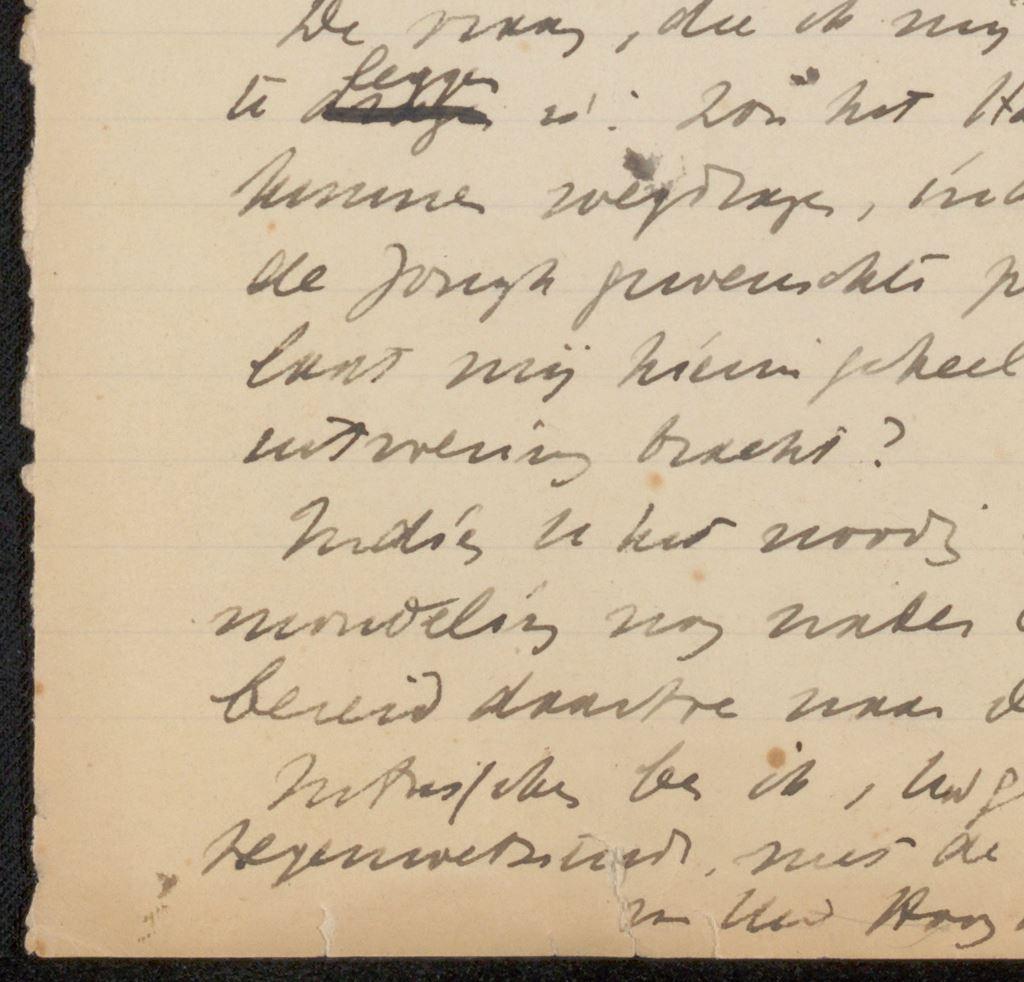 De vraag, die ik mij
te leggen is: Zou het
kunnen wegdragen,
de Jongh gewenschte
laat mij hierin geheel
uitvoering bracht?
Indien U het noodig
mondeling nog nader
bereid daartoe naar
Intusschen ben ik,
tegenwoordig, met de
van Uw Hoog